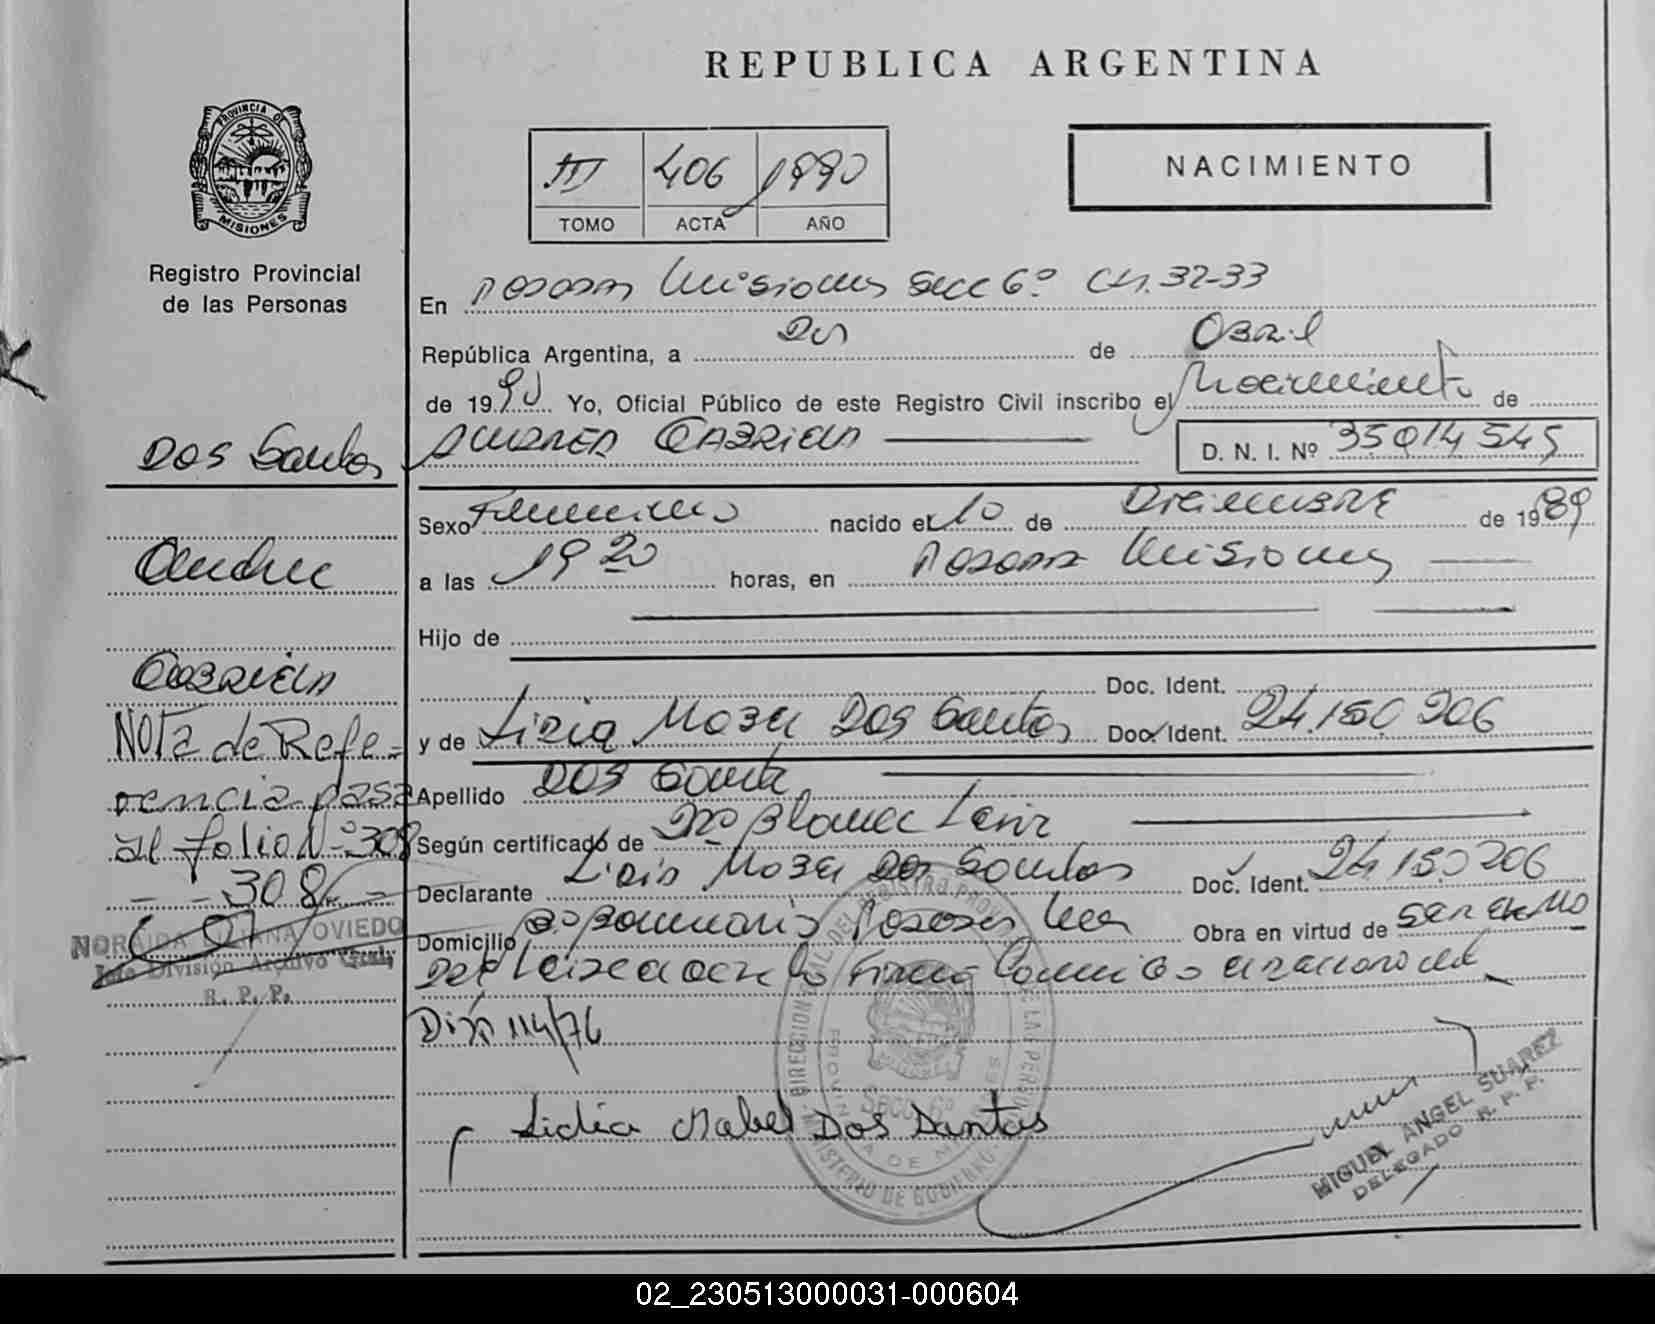 REPUBLICA ARGENTINA
PROVINCIA DE
MISIONES
Registro Provincial
de las Personas
III 406 1990
TOMO ACTA AÑO
NACIMIENTO
En Posadas Misiones Secc 6º Ch. 32-33
República Argentina, a dos de Abril
de 1990 Yo, Oficial Público de este Registro Civil inscribo el Nacimiento de
Andrea Gabriela D. N. I. Nº 35.014.545
Dos Santos
Sexo Femenino nacido el 10 de Diciembre de 1989
a las 19 20 horas, en Posadas Misiones
Andrea
Hijo de
Gabriela
Doc. Ident.
y de Lidia Mabel Dos Santos Doc. Ident. 24.150.206
Apellido Dos Santos
Según certificado de Dra Blanca
Declarante Lidia Mabel Dos Santos Doc. Ident. 24.150.206
Domicilio Posadas Obra en virtud de
firma
Nota de Refe-
rencia pasa
al folio Nº 308
- - 308 -
NORAIDA LILIANA OVIEDO
Jefe División Archivo Gral.
R. P. P.
114/76
Lidia Mabel Dos Santos
MIGUEL ANGEL SUAREZ
DELEGADO R. P. P.
SECC. 6ª
MINISTERIO DE GOBIERNO
02_230513000031-000604